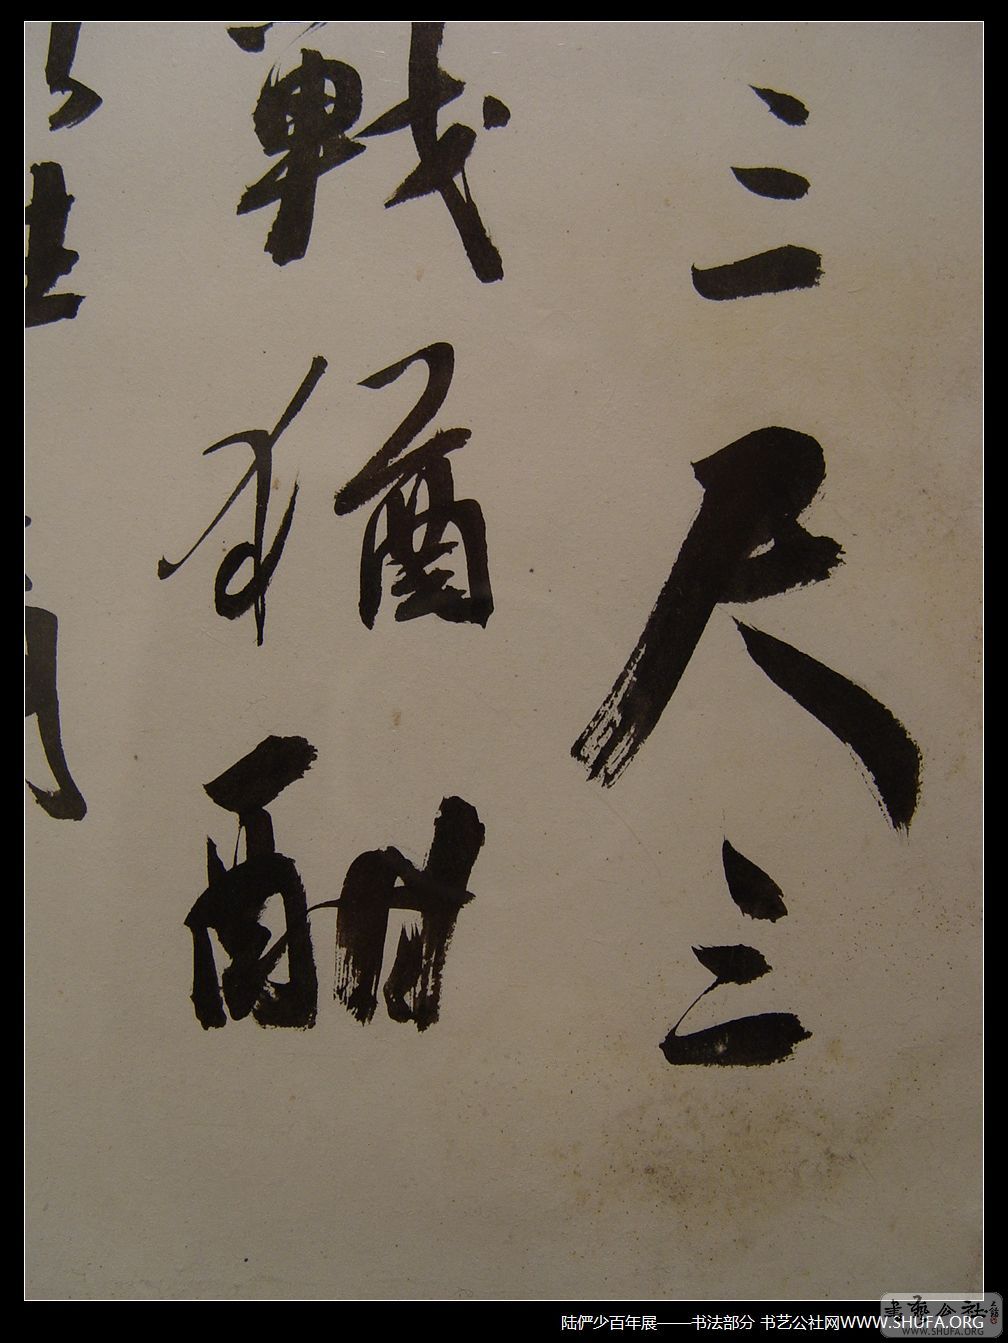 三尺三
戰猶酣
陆俨少百年展——书法部分 书艺公社网WWW.SHUFA.ORG
書藝公社
WWW.SHUFA.ORG